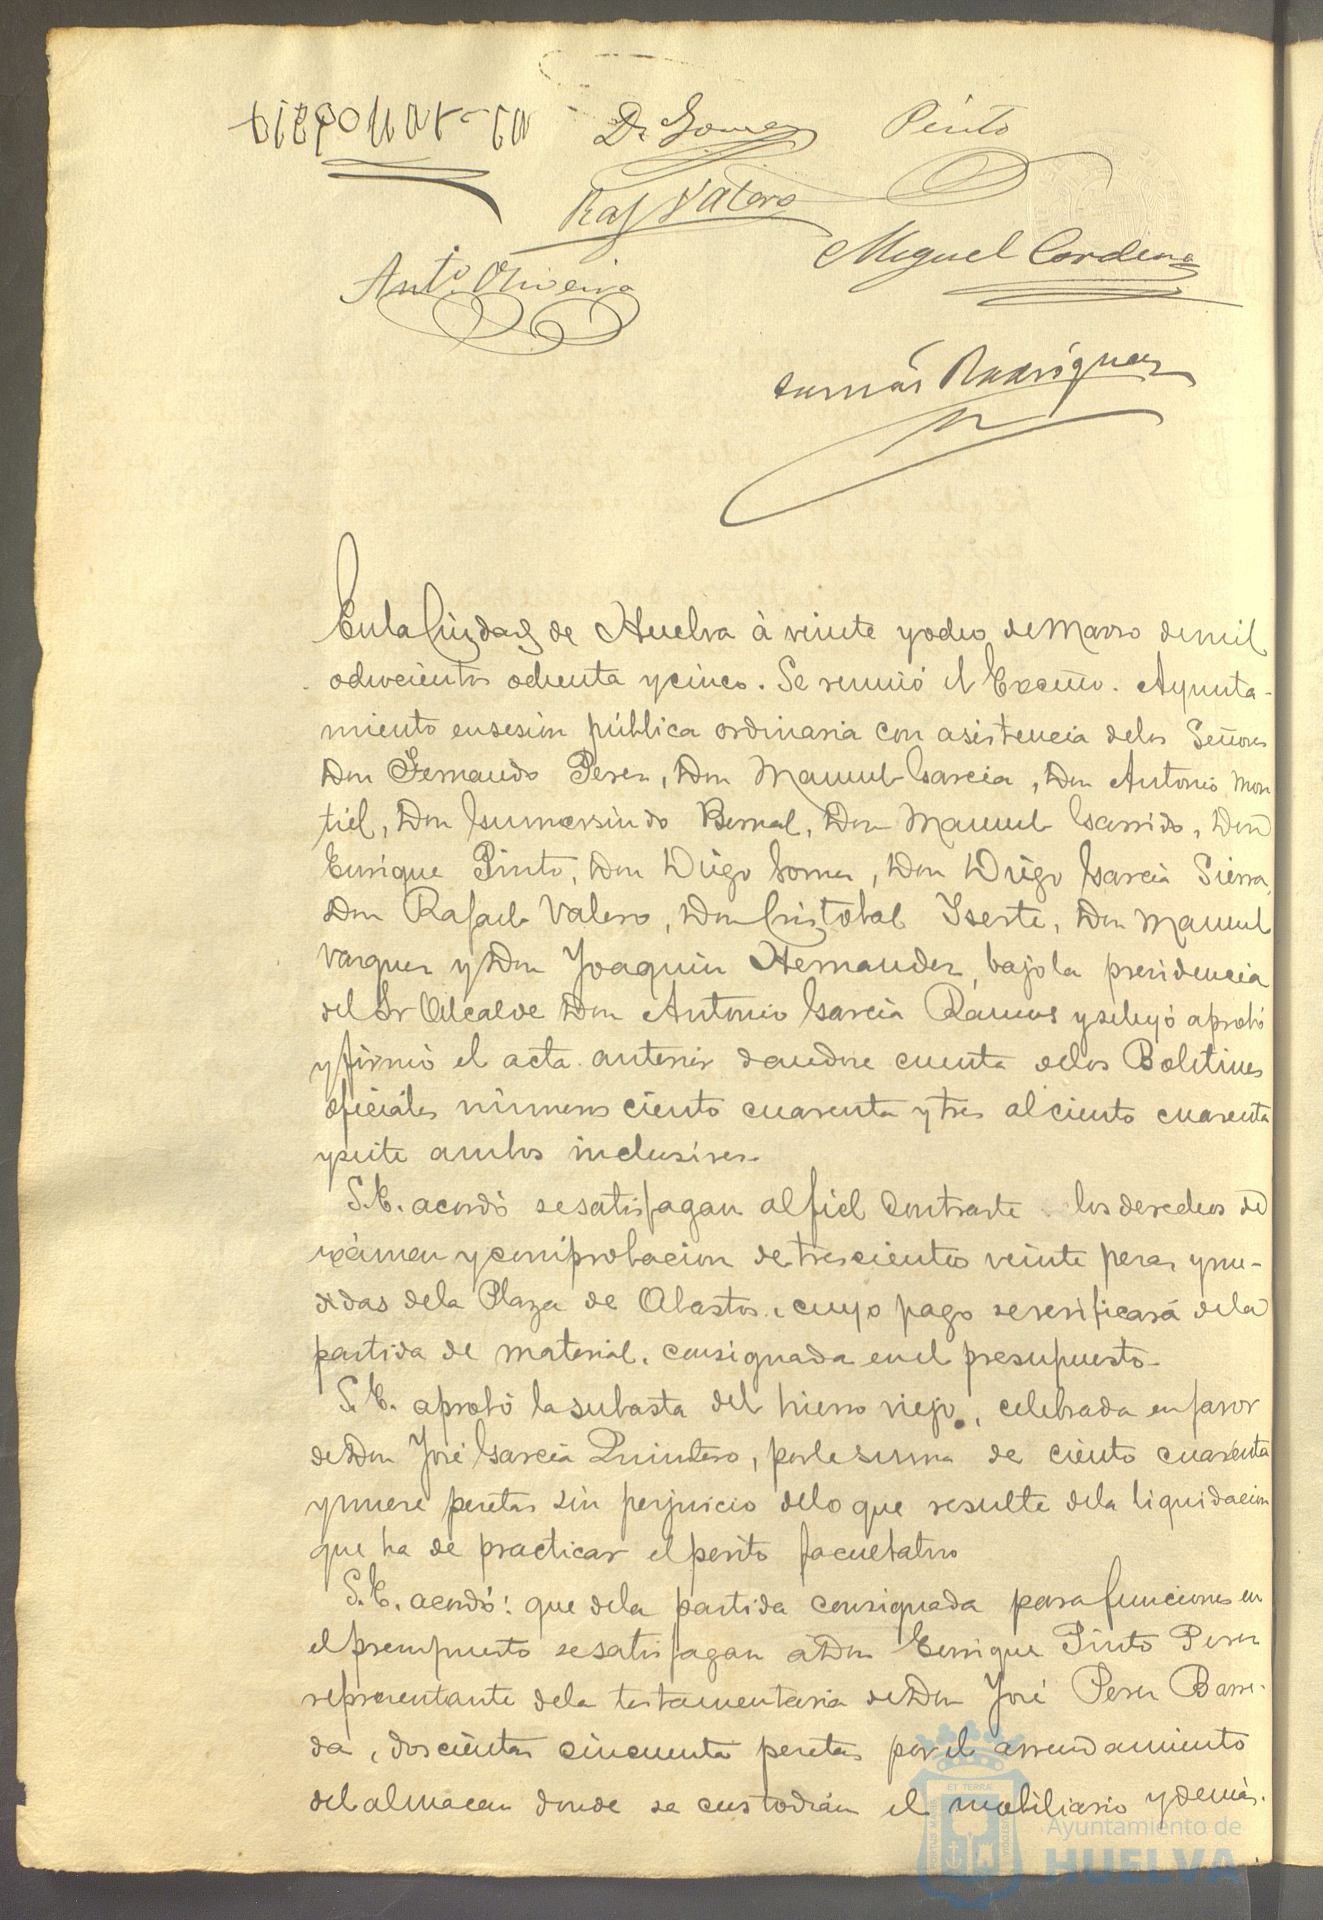 Dº Gomez
Pinto
Raf Valero
Miguel Cordero
Antº Oliveira
Tomás Rodriguez
En la Ciudad de Huelva à veinte y ocho de Marzo de mil
ochocientos ochenta y cinco. Se reunió el Excmo. Ayunta-
miento en sesión pública ordinaria con asistencia de los Señores
Don Fernando Perez, Don Manuel Garcia, Don Antonio Mon
tiel, Don Gumersindo Bernal, Don Manuel Garrido, Don
Enrique Pinto, Don Diego Gomez, Don Diego Garcia Sierra,
Don Rafael Valero, Don Cristobal Yserte, Don Manuel
Vazquez y Don Joaquin Hernandez, bajo la presidencia
del Sr Alcalde Don Antonio Garcia Ramos y se leyó aprobó
y firmó el acta anterior dandose cuenta de los Boletines
oficiales números ciento cuarenta y tres al ciento cuarenta
y siete ambos inclusives.
S.E. acordó se satisfagan al fiel Contraste los derechos de
exámen y comprobacion de trescientos veinte pesas y me-
didas de la Plaza de Abastos, cuyo pago se verificará de la
partida de material, consignada en el presupuesto.
S.E. aprobó la subasta del hierro viejo, celebrada en favor
de Don José Garcia Quintero, por la suma de ciento cuarenta
y nueve pesetas sin perjuicio de lo que resulte de la liquidacion
que ha de practicar el perito facultativo
S.E. acordó: que de la partida consignada para funciones en
el presupuesto se satisfagan à Don Enrique Pinto Perez
representante de la testamentaria de Don José Perez Barre-
da, doscientas cincuenta pesetas por el arrendamiento
del almacen donde se custodian el mobiliario y demás.
ET TERRA
Ayuntamiento de
HUELVA